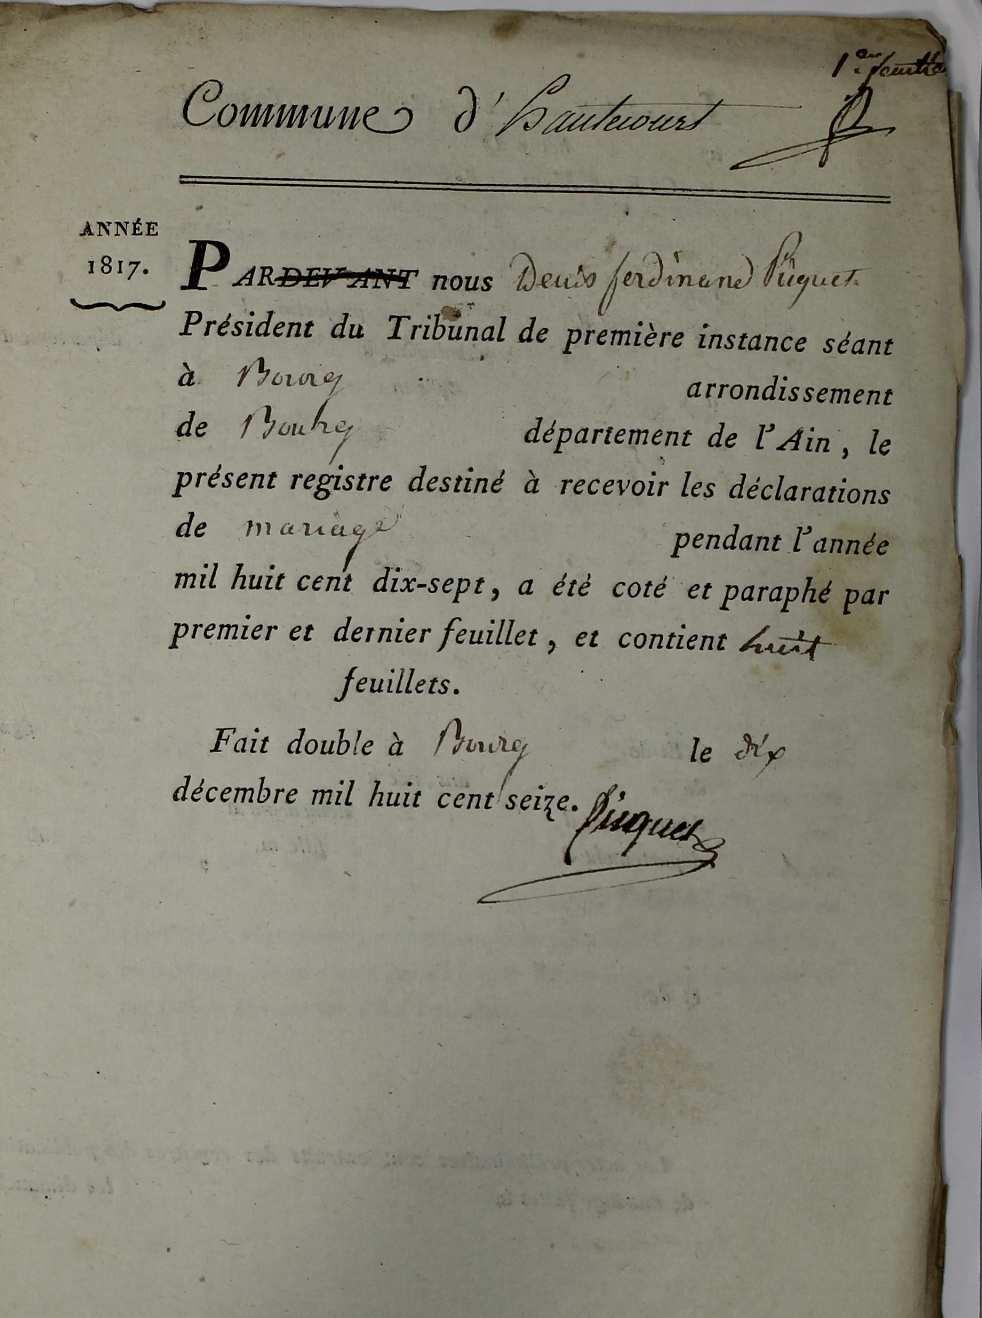 1er feuillet
Commune d'hautecourt
ANNÉE
1817.
PARDEVANT nous Denis ferdinand Piquet
Président du Tribunal de première instance séant
à Bourg arrondissement
de Bourg département de l'Ain, le
présent registre destiné à recevoir les déclarations
de mariage pendant l'année
mil huit cent dix-sept, a été coté et paraphé par
premier et dernier feuillet, et contient huit
feuillets.
Fait double à Bourg le dix
décembre mil huit cent seize.
Piquet